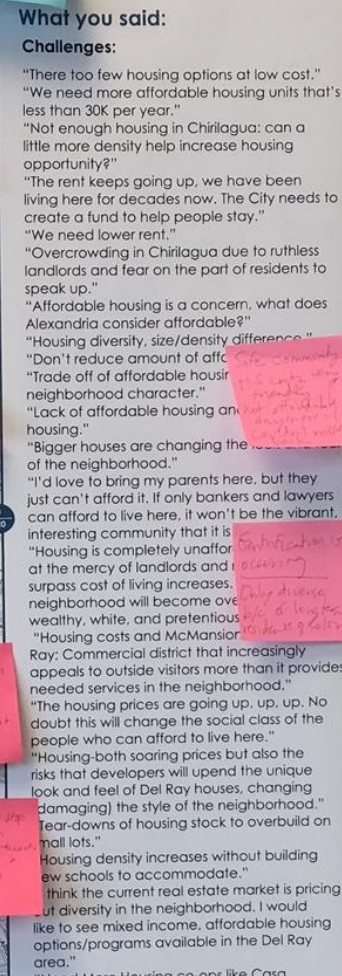 What you said:
Challenges:
“There too few housing options at low cost.”
“We need more affordable housing units that's
less than 30K per year.”
“Not enough housing in Chirilagua: can a
little more density help increase housing
opportunity?”
“The rent keeps going up, we have been
living here for decades now. The City needs to
create a fund to help people stay.”
“We need lower rent.”
“Overcrowding in Chirilagua due to ruthless
landlords and fear on the part of residents to
speak up.”
“Affordable housing is a concern, what does
Alexandria consider affordable?”
“Housing diversity, size/density difference.”
“Don't reduce amount of
“Trade off of affordable
neighborhood character.”
“Lack of affordable housing
housing.”
“Bigger houses are changing the
of the neighborhood.”
“I'd love to bring my parents here, but they
just can't afford it. If only bankers and lawyers
can afford to live here, it won't be the vibrant,
interesting community that it is
“Housing is completely
at the mercy of landlords and
surpass cost of living increases.
neighborhood will become
wealthy, white, and pretentious
“Housing costs and
Ray; Commercial district that increasingly
appeals to outside visitors more than it provides
needed services in the neighborhood.”
“The housing prices are going up, up, up. No
doubt this will change the social class of the
people who can afford to live here.”
“Housing-both soaring prices but also the
risks that developers will upend the unique
look and feel of Del Ray houses, changing
damaging) the style of the neighborhood.”
Tear-downs of housing stock to overbuild on
lots.”
Housing density increases without building
schools to accommodate.”
think the current real estate market is pricing
diversity in the neighborhood. I would
like to see mixed income, affordable housing
options/programs available in the Del Ray
area.”
Housing co-ops like Casa
Safe, community
Gentrification is
occurring
Only diverse